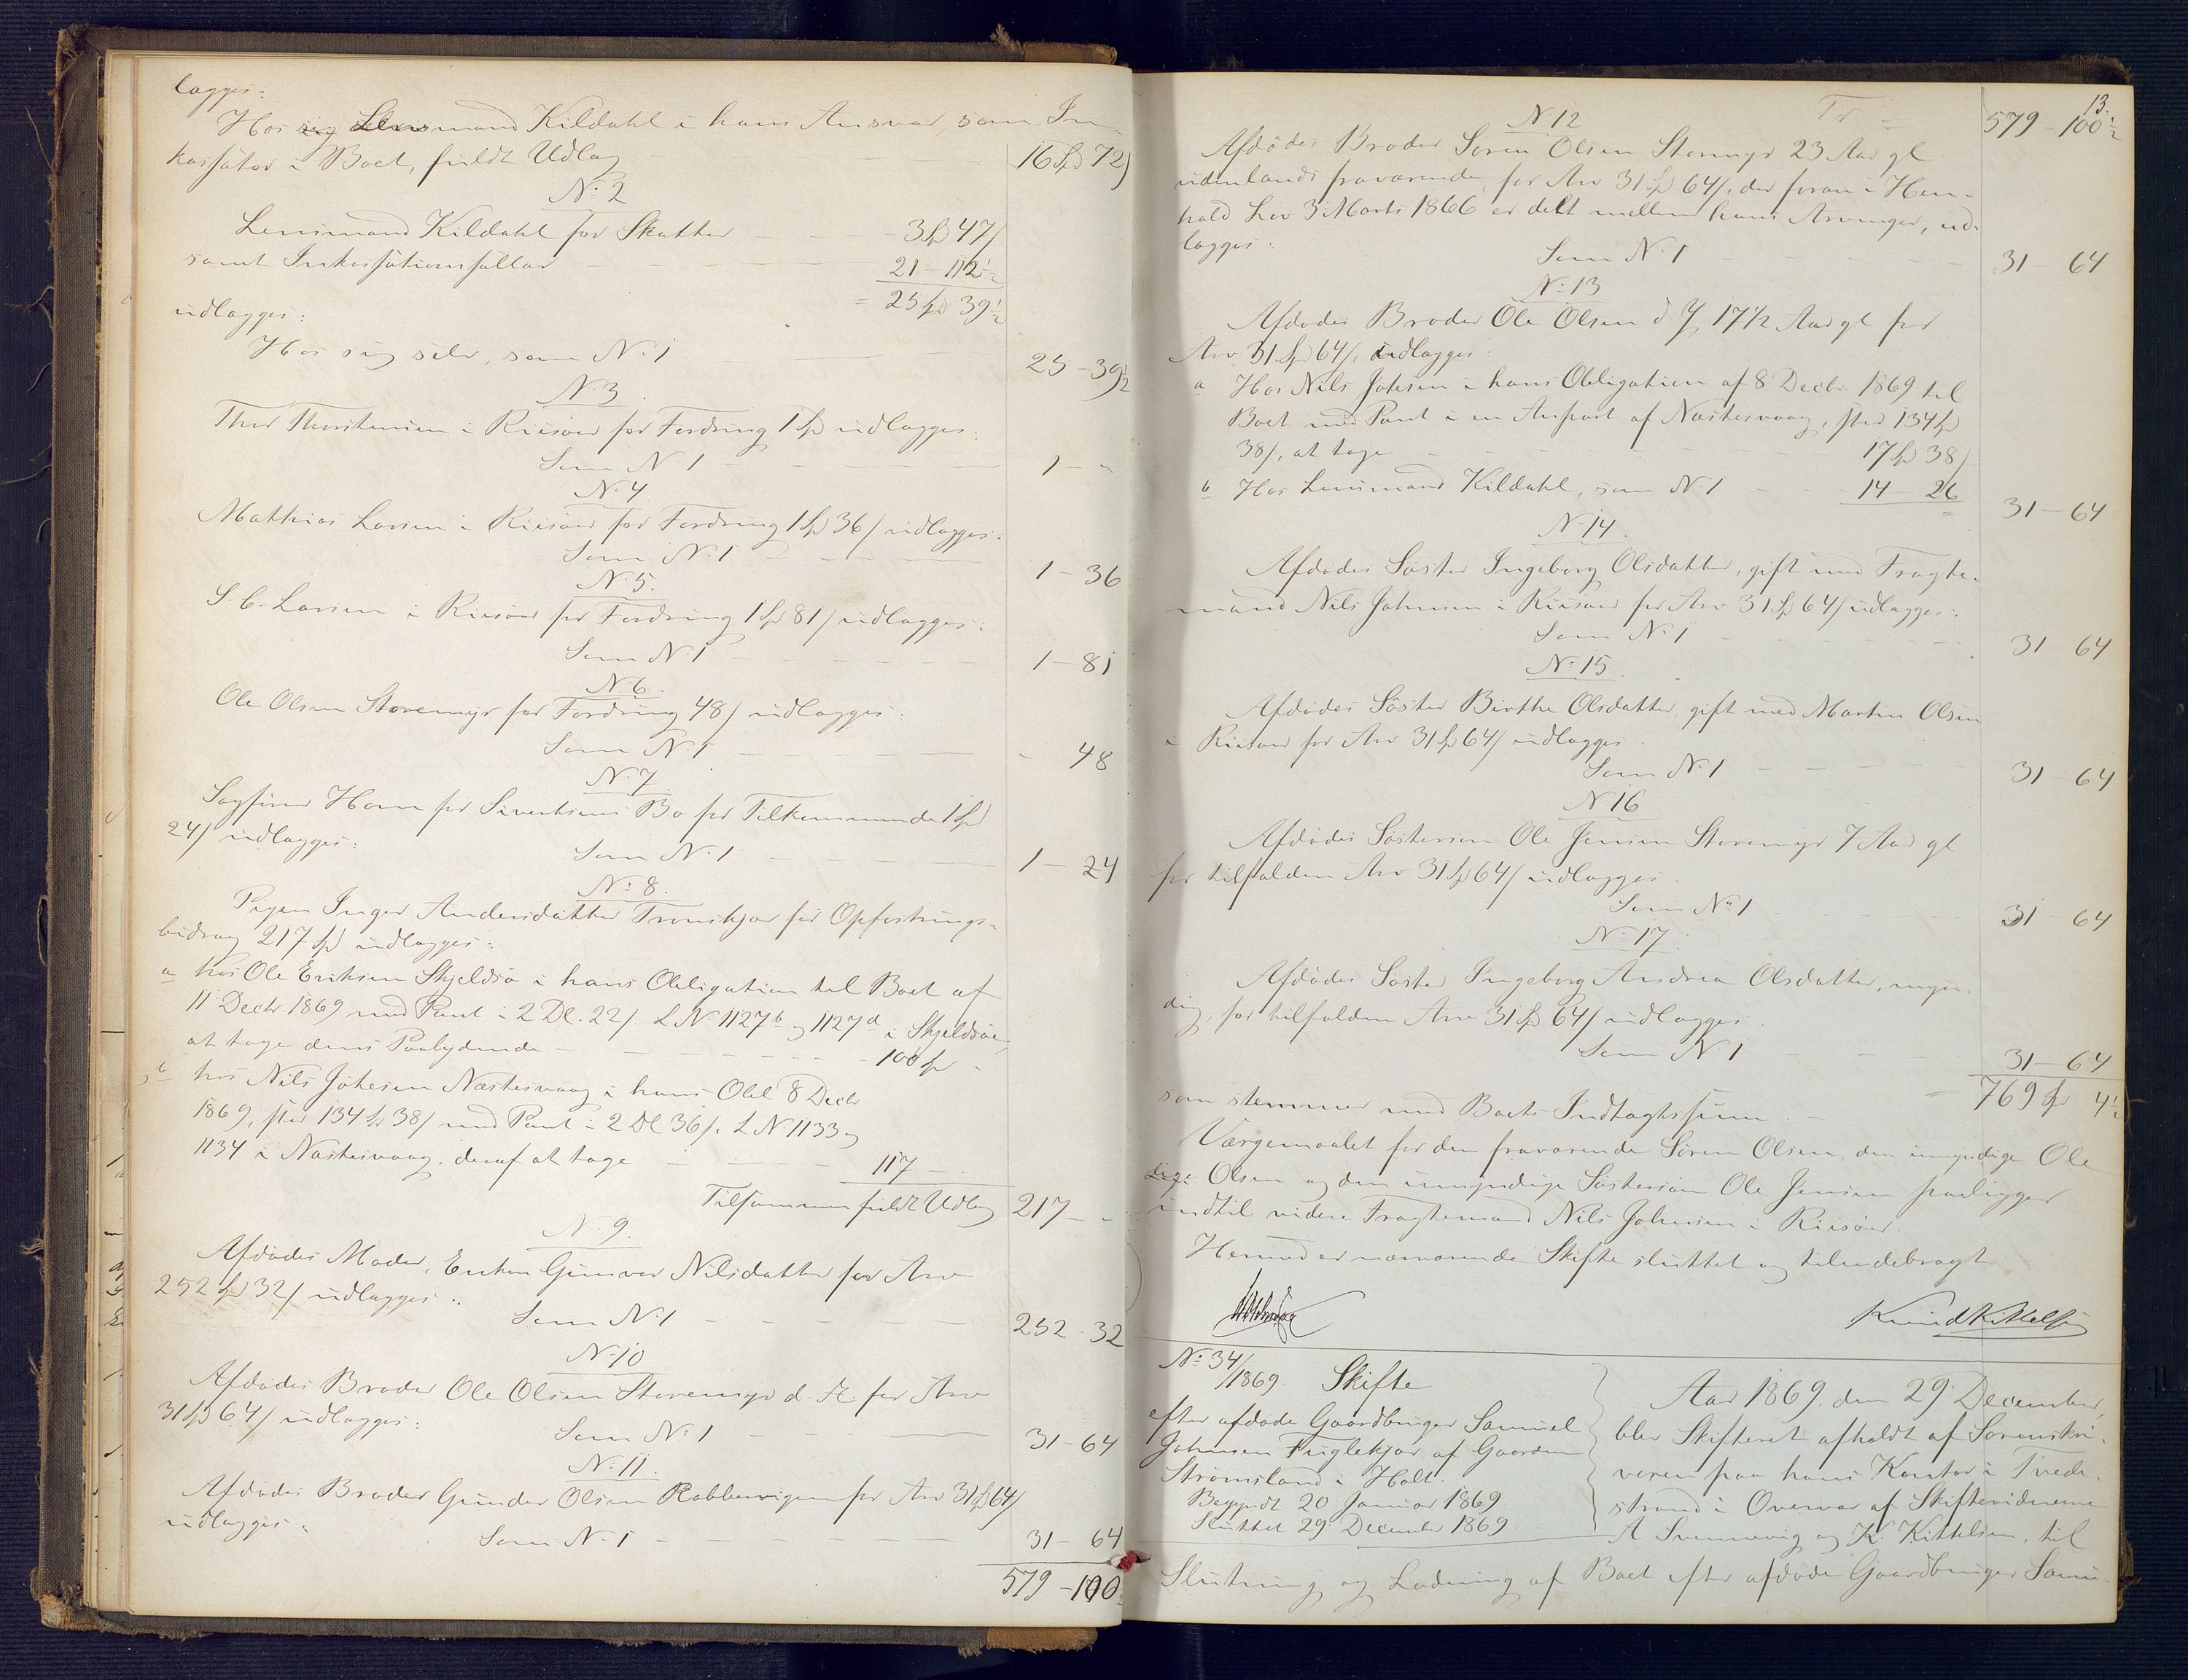 lægges:
Hos Lensmand Kildahl i hans Ansvar, som In-
kassator i Boet, fuldt Udlæg 16 Spd 72
No 2.
Lensmand Kildahl for Skatter 3 Spd 47
samt Inkassationssallar 21 - 112½
= 25 Spd 39½
udlægges:
Hos sig selv, som No 1 25 - 39½
No 3.
Thor Thorstensen i Riisøer for Fordring 1 Spd udlægges:
Som No 1 1 - -
No 4
Mathias Larsen i Riisøer for Fordring 1 Spd 36 / udlægges:
Som No 1 1 - 36
No 5.
S C Larsen i Riisøer for Fordring 1 Spd 81 / udlægges:
Som No 1 1 - 81
No 6.
Ole Olsen Storemyr for Fordring 48 / udlægges:
Som No 1 - 48
No 7.
Sagfører Horn for Sivertsens Bo for Tilkommende 1 Spd
24 / udlægges:
Som No 1 1 - 24
No 8.
Pigen Inger Andersdatter for Opfostrings-
bidrag 217 Spd udlægges:
a hos Ole Eriksen Skjeldsø i hans Obligation til Boet af
11 Decbr. 1869 med Pant i 2 Dl. 22 /. L No 1127b og 1127d i Skjeldsøe,
at tage dens Paalydende 100 Spd
b hos Nils Næstesvaag i hans Obl 8 Decbr
1869, stor 134 Spd 38 / med Pant i 2 Dl 36 /. L No 1133 og
1134 i Næstesvaag, deraf at tage 117 -
Tilsammen fuldt Udlæg 217 - -
No 9.
Afdødes Moder, Enken Gunvor Nilsdatter for Arv
252 Spd 32 / udlægges:
Som No 1 252 - 32
No 10
Afdødes Broder Ole Olsen Storemyr d. Æ. for Arv
31 Spd 64 / udlægges:
Som No 1 31 - 64
No 11.
Afdødes Broder Gunder Olsen for Arv 31 Spd 64 /
udlægges:
Som No 1 31 - 64
579 - 100½
13.
Tr = 579 - 100½
No 12
Afdødes Broder Søren Olsen Storemyr 23 Aar gl
udenlands fraværende, for Arv 31 Spd 64 /, der foran i Hen-
hold Lov 3 Marts 1866 er delt mellem hans Arvinger, ud-
lægges:
Som No 1 31 - 64
No 13
Afdødes Broder Ole Olsen d Y, 17½ Aar gl for
Arv 31 Spd 64 /, udlægges:
a Hos Nils i hans Obligation af 8 Decbr. 1869 til
Boet med Pant i en Anpart af Næstesvaag, stor 134 Spd
38 /, at tage 17 Spd 38 /
b Hos Lensmand Kildahl, som No 1 14 - 26
= 31 - 64
No 14.
Afdødes Søster Ingeborg Olsdatter, gift med Fragte-
mand Nils Johnsen i Riisøer for Arv 31 Spd 64 / udlægges:
Som No 1 31 64
No 15.
Afdødes Søster Birthe Olsdatter, gift med Martin Olsen
i Riisøer for Arv 31 Spd 64 / udlægges
Som No 1 31 - 64
No 16
Afdødes Søstersøn Ole Jensen Storemyr 7 Aar gl
for tilfalden Arv 31 Spd 64 / udlægges
Som No 1 31 64
No 17.
Afdødes Søster Ingeborg Andrea Olsdatter, myn-
dig, for tilfalden Arv 31 Spd 64 / udlægges
Som No 1 31 - 64
som stemmer med Boets Indtægtssum = 769 Spd 4½
Værgemaalet for den fraværende Søren Olsen, den umyndige Ole
Olsen og den umyndige Søstersøn Ole Jensen paaligger
indtil videre Fragtemand Nils Johnsen i Riisøer.
Hermed er nærværende Skifte sluttet og tilendebragt
Knud Kittelsen
No 34/1869. Skifte
efter afdøde Gaardbruger Samuel
Johnsen Fuglekjær af Gaarden
Strømsland i Holt.
Begyndt 20 Januar 1869
Sluttet 29 December 1869.
Aar 1869, den 29 December,
blev Skifteret afholdt af Sorenskri-
veren paa hans Kontor i Tvede-
strand i Overvær af Skiftevidnerne
A Svennevig og K. Kittelsen, til
Slutning og Lodning af Boet efter afdøde Gaardbruger Samu-